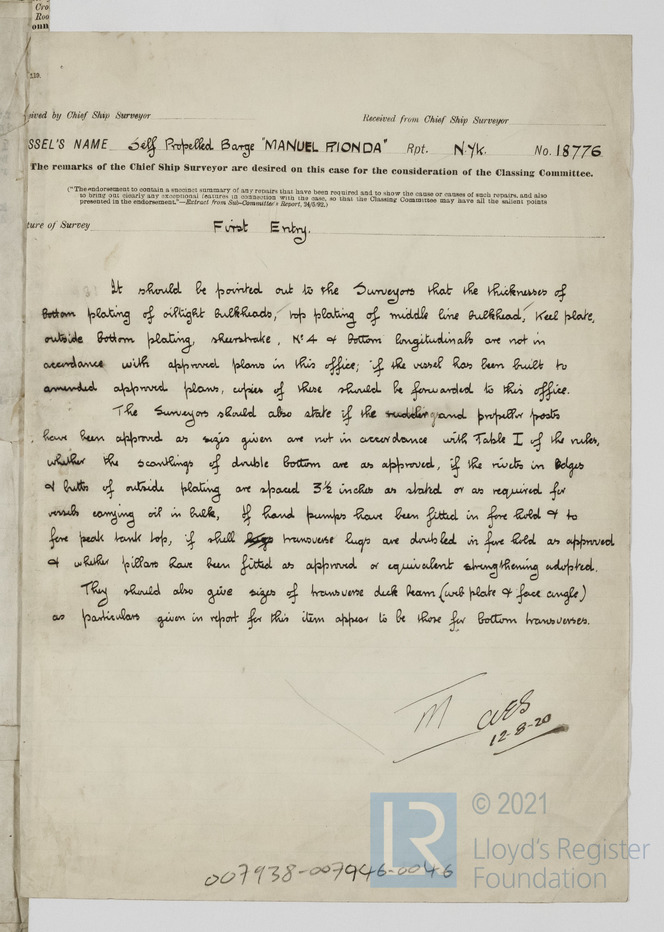 Cro
Roo
onn
219.
ived by Chief Ship Surveyor Received from Chief Ship Surveyor
SSEL'S NAME Self Propelled Barge "MANUEL RIONDA" Rpt. N.Yk. No. 18776
The remarks of the Chief Ship Surveyor are desired on this case for the consideration of the Classing Committee.
("The endorsement to contain a succinct summary of any repairs that have been required and to show the cause or causes of such repairs, and also
to bring out clearly any exceptional features in connection with the case, so that the Classing Committee may have all the salient points
presented in the endorsement."—Extract from Sub-Committee's Report, 24/5/92.)
ture of Survey First Entry.
It should be pointed out to the Surveyors that the thicknesses of
bottom plating of oiltight bulkheads, top plating of middle line bulkhead, Keel plate,
outside bottom plating, sheerstrake, No 4 & bottom longitudinals are not in
accordance with approved plans in this office; if the vessel has been built to
amended approved plans, copies of these should be forwarded to this office.
The Surveyors should also state if the rudder and propeller posts
have been approved as sizes given are not in accordance with Table I of the rules,
whether the scantlings of double bottom are as approved, if the rivets in Edges
& butts of outside plating are spaced 3½ inches as stated or as required for
vessels carrying oil in bulk, If hand pumps have been fitted in fore hold & to
fore peak tank top, if shell transverse lugs are doubled in fore hold as approved
& whether pillars have been fitted as approved or equivalent strengthening adopted.
They should also give sizes of transverse deck beam (web plate & face angle)
as particulars given in report for this item appear to be those for bottom transverses.
12-8-20
007938-007946-0046
LR
© 2021
Lloyd's Register
Foundation